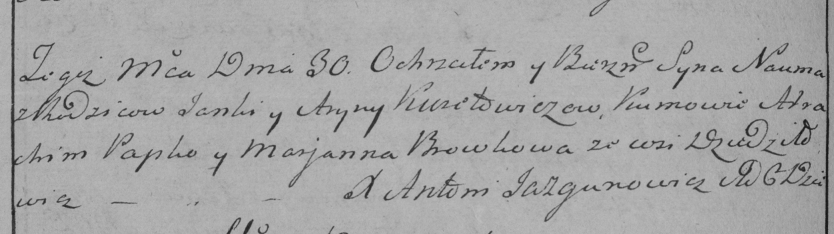 Tegoż Mca Dnia 30. Ochrzciłem y Bierzm Syna Nauma
z Rodzicow Janki y Aryny Kuzełowiczow, Kumowie Atra
chim Papko y Marjanna Browkowa ze wsi Dziedziło
wicz — . . — X Antoni Jazgunowicz AD C Dzie